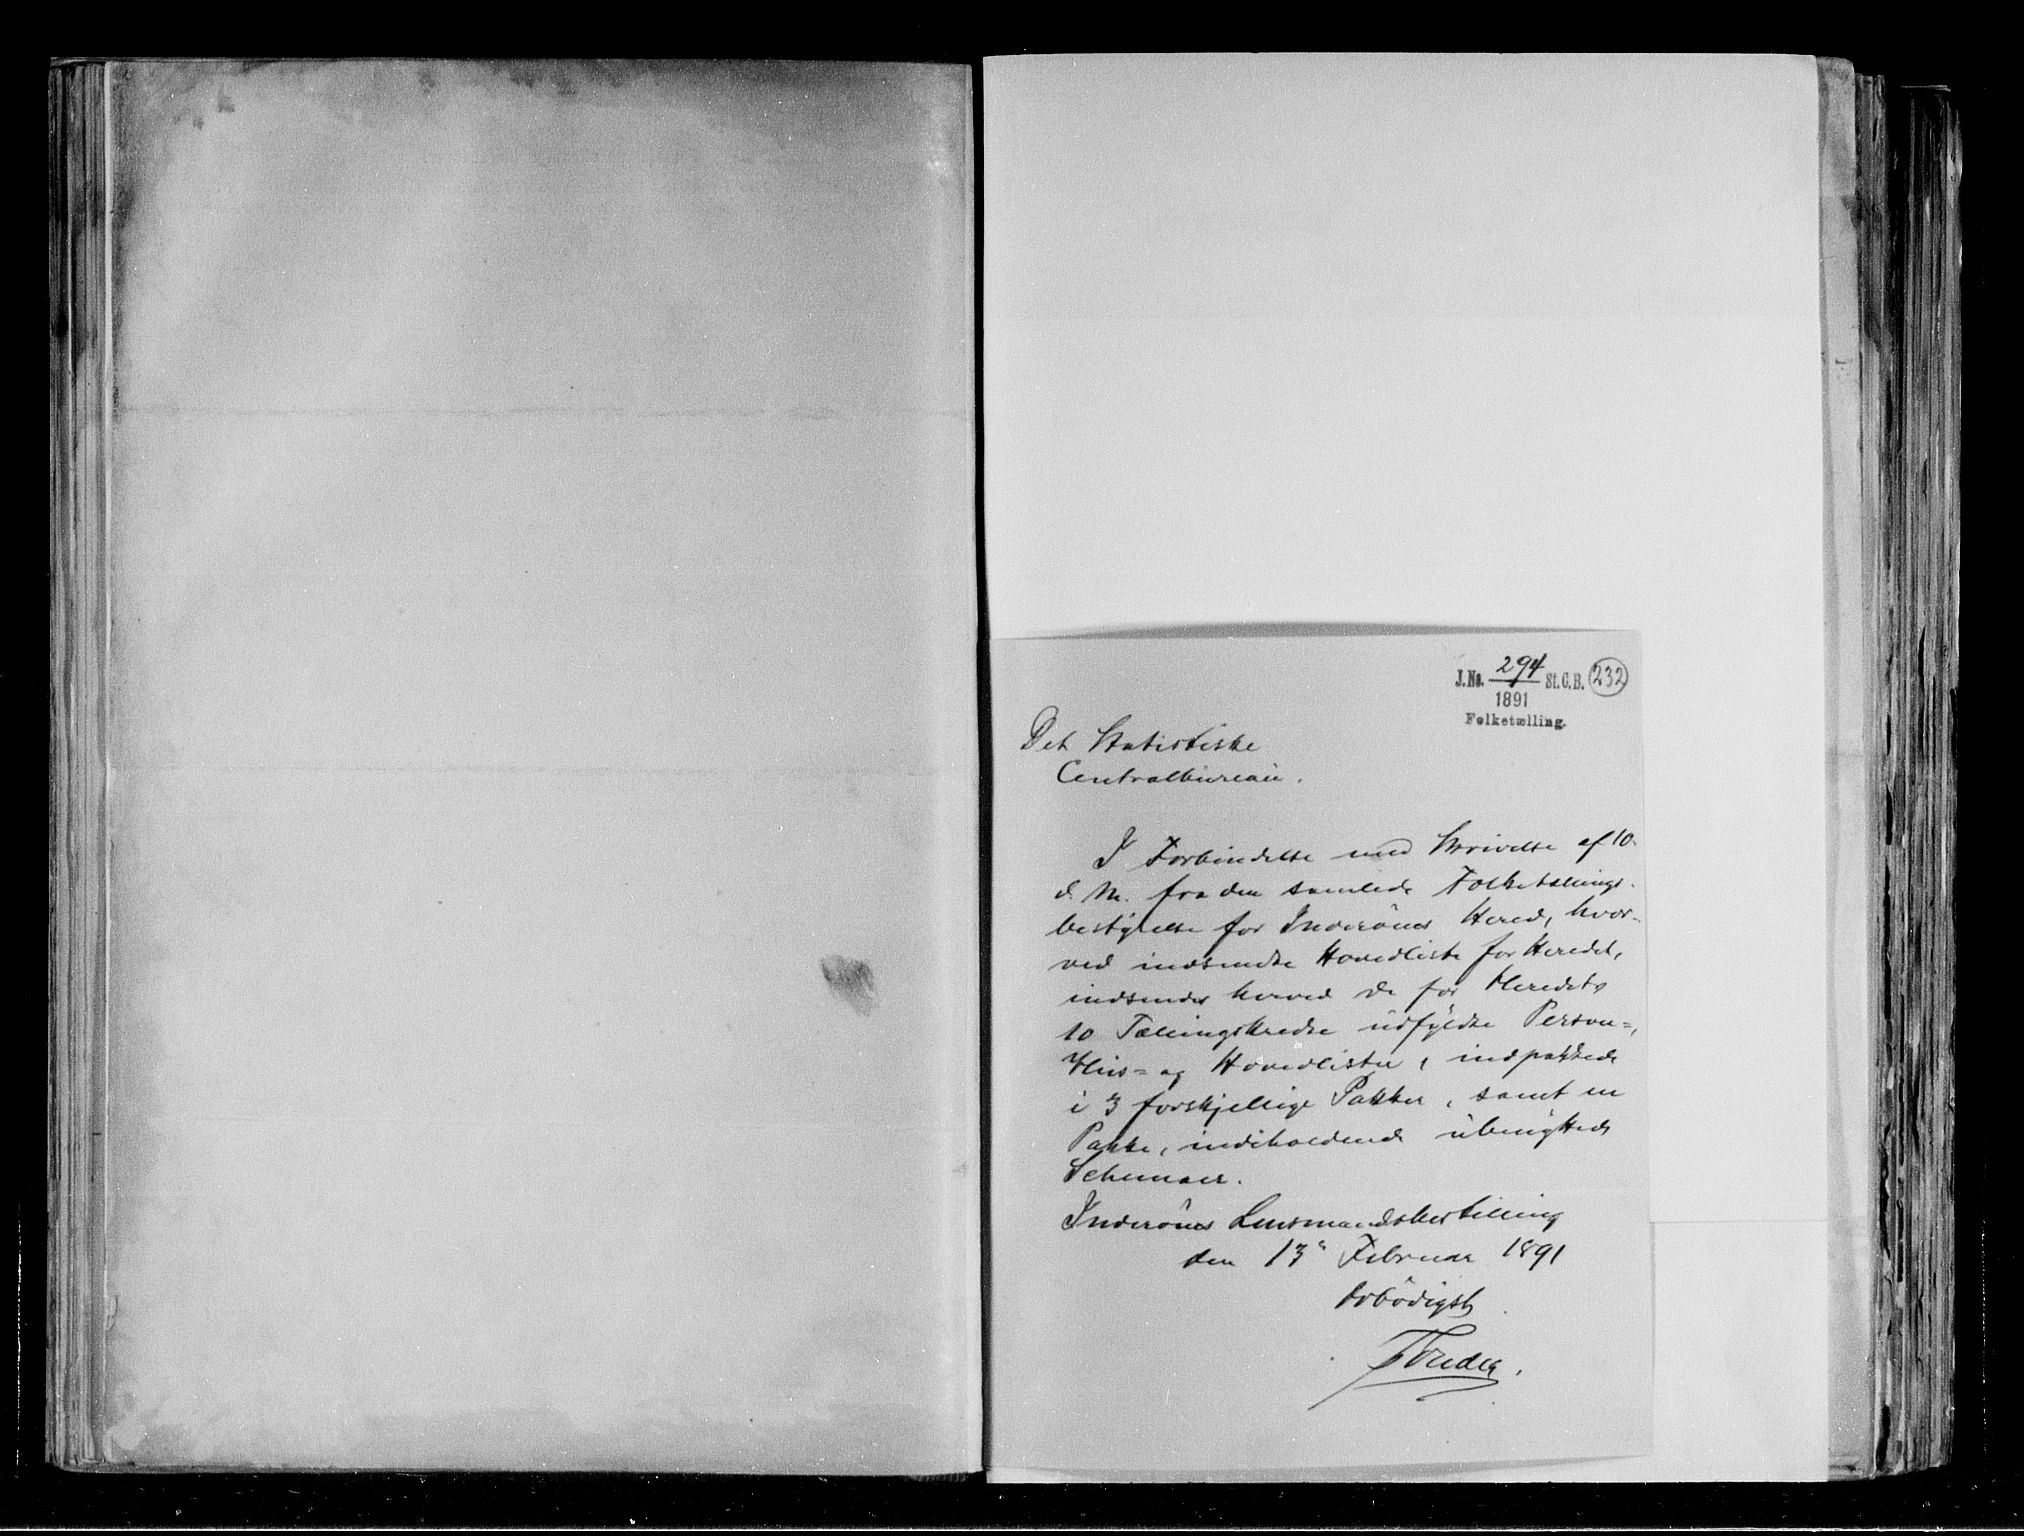 J.No. 294 St.C.B. 232
1891
Folketælling.
Det Statistiske
Centralbureau.
I Forbindelse med Skrivelse af 10.
d. M. fra den samlede Folketællings-
bestyrelse for Inderøens Hered, hvor-
ved indsendte Hovedliste for Heredet,
indsendes herved de for Heredets
10 Tællingskredse udfyldte Person-,
Hus- og Hovedlister, indpakkede
i 3 forskjellige Pakker, samt en
Pakke, indeholdende ubenyttede
Schemaer.
Inderøens Lensmandsbestilling
den 13 Februar 1891
Ærbödigst